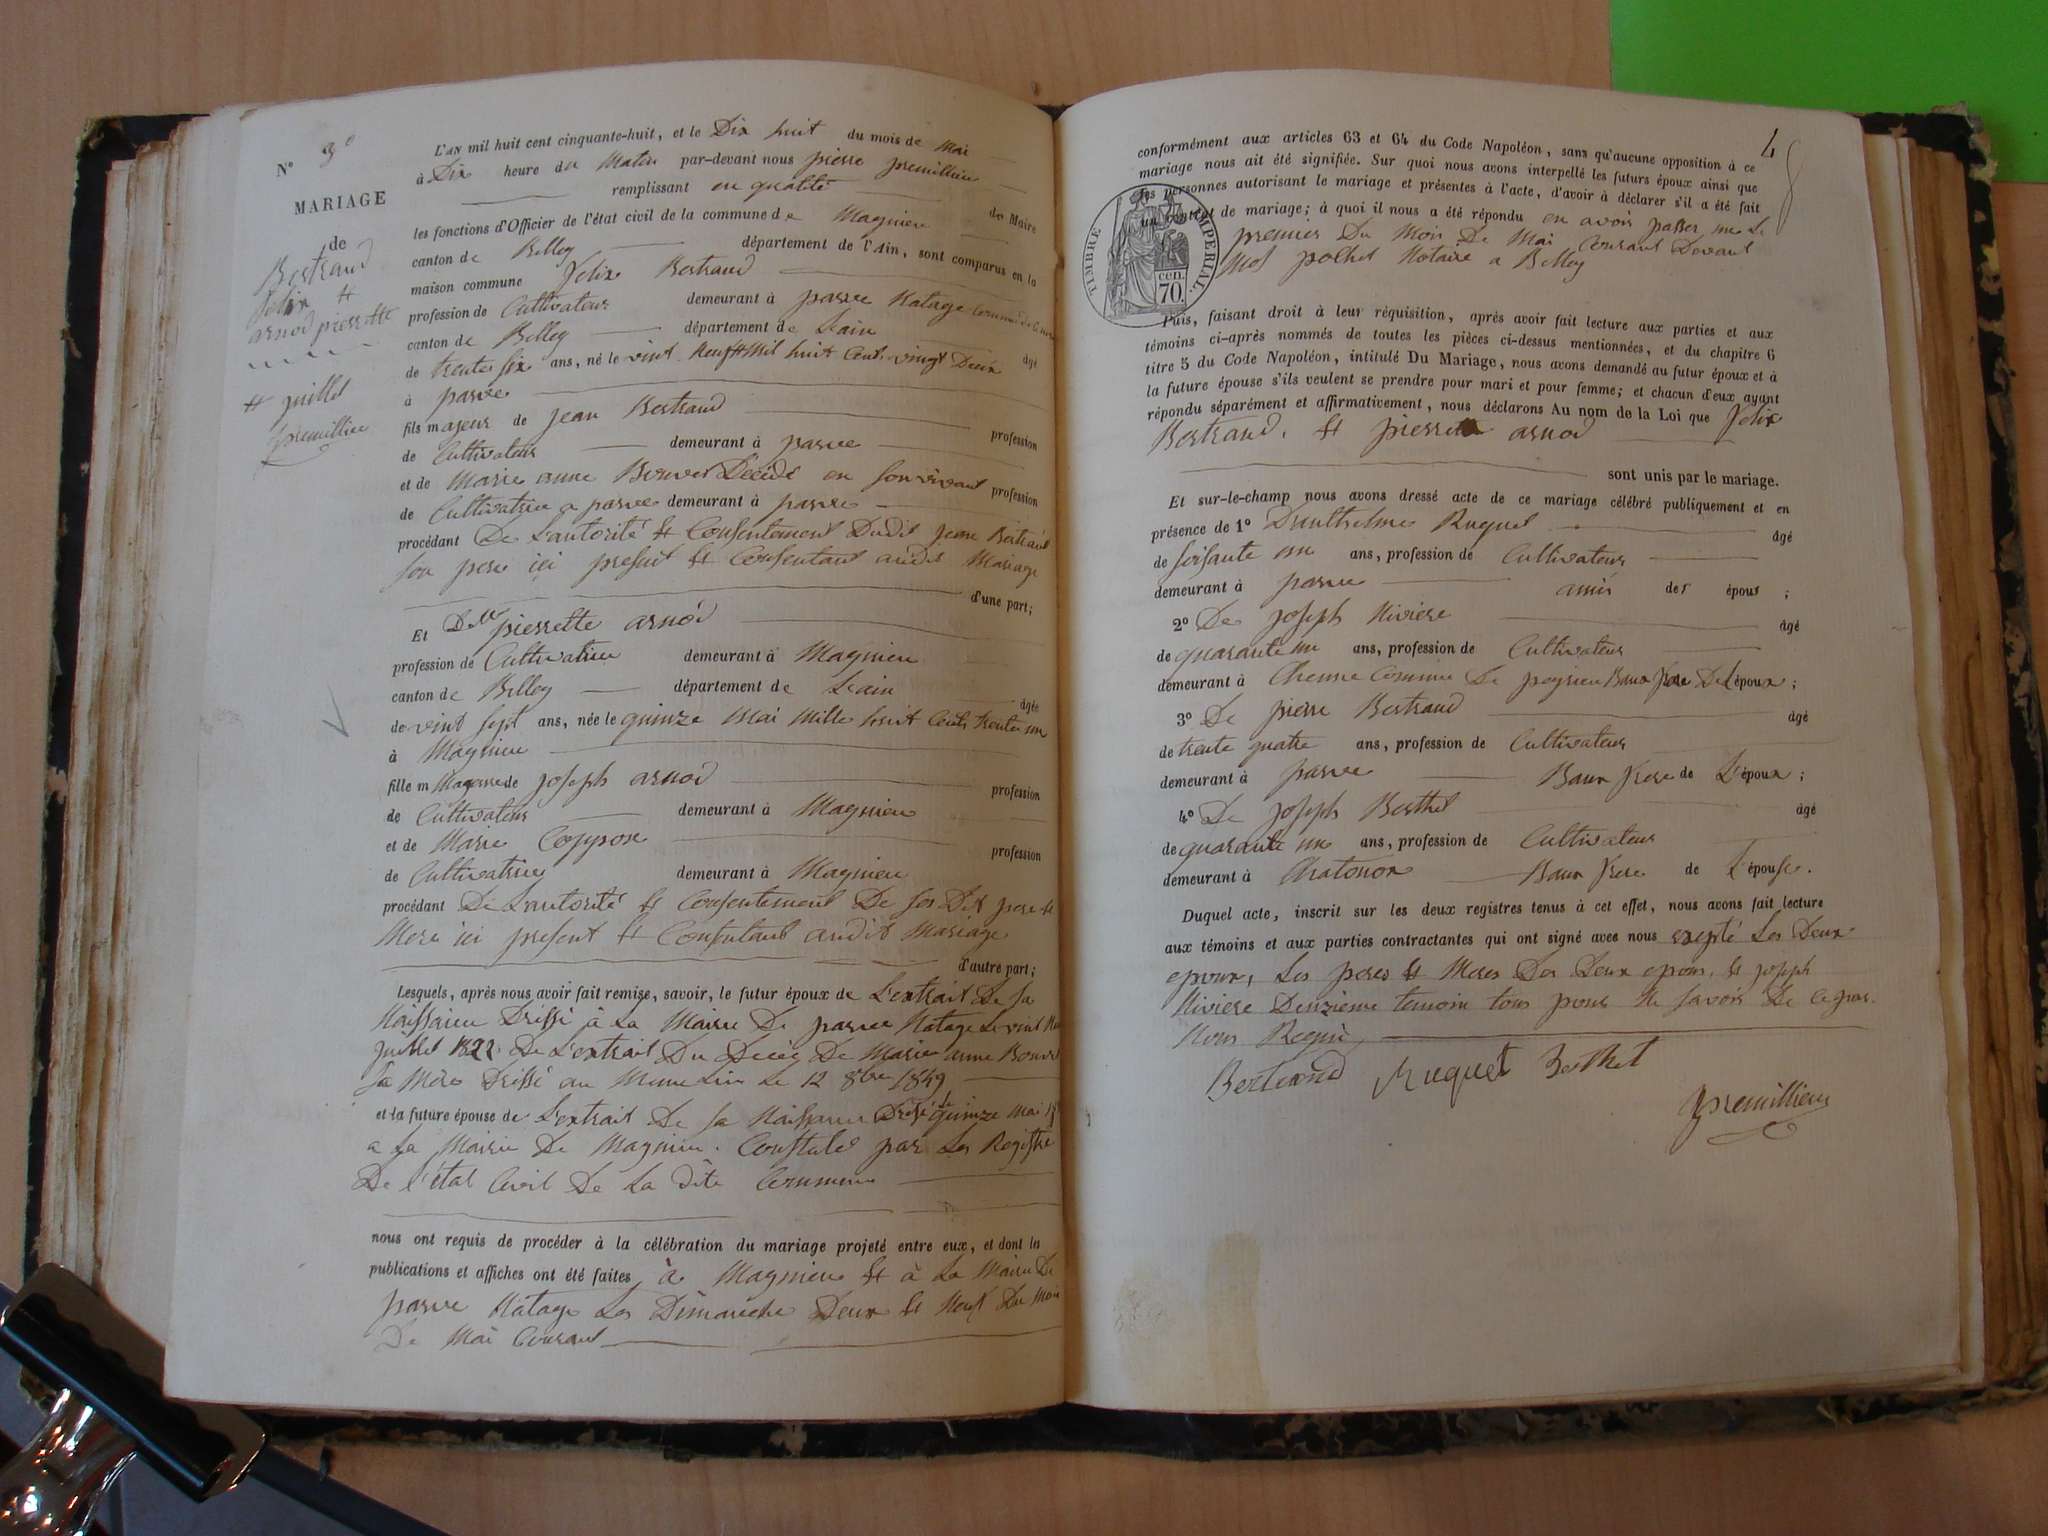 N° 3°
MARIAGE
de
Bertrand
felix &
arnod pierrette
# juillet
premillieu
L'AN mil huit cent cinquante-huit, et le Dix huit du mois de Mai
à Dix heure du Matin par-devant nous pierre premillieu
remplissant en qualité de Maire
les fonctions d'Officier de l'état civil de la commune de Magnieu
canton de Belley département de l'Ain, sont comparus en la
maison commune felix Bertrand
profession de Cultivateur demeurant à parve Natage
canton de Belley département de Lain âgé
de trente six ans, né le vint Neuf # Mil huit Cent vingt Deux
à parve
fils majeur de jean Bertrand profession
de Cultivateur demeurant à parve
et de Marie anne Bouvet Décédé en Sonvivant profession
de Cultivatrice a parve demeurant à parve
procédant De Lautorité & Consentement Dudit jean Bertrand
Son pere ici présent & Consentant audit Mariage
d'une part;
Et Dlle pierrette arnod
profession de Cultivatrice demeurant à Magnieu
canton de Belley département de Lain âgée
de vint sept ans, née le quinze Mai Mille huit Cents trente un
à Magnieu
fille m Majeure de joseph arnod profession
de Cultivateur demeurant à Magnieu
et de Marie Coppon profession
de Cultivatrice demeurant à Magnieu
procédant De Lautorité & Consentement De Ses Dit pere &
Mere ici présent & Consentant audit Mariage
d'autre part;
Lesquels, après nous avoir fait remise, savoir, le futur époux de L'extrait De Sa
Naissance Dréssé à La Mairie De parve Natage Le vint
juillet 1822. De L'extrait Du Décès De Marie anne Bouvet
Sa Mère Dréssé au Meme Lieu Le 12 8bre 1849
et la future épouse de L'extrait De Sa Naissance Dréssé le quinze Mai
a La Mairie De Magnieu. Constaté par Les Registre
De l'état Civil De La dite Commune
nous ont requis de procéder à la célébration du mariage projeté entre eux, et dont les
publications et affiches ont été faites à Magnieu & à La Mairie De
parve Natage Les Dimanche Deux & Neuf Du Mois
De Mai Courant
4
conformément aux articles 63 et 64 du Code Napoléon, sans qu'aucune opposition à ce
mariage nous ait été signifiée. Sur quoi nous avons interpellé les futurs époux ainsi que
les personnes autorisant le mariage et présentes à l'acte, d'avoir à déclarer s'il a été fait
un contrat de mariage; à quoi il nous a été répondu en avoir passer une Le
premier Du Mois De Mai Courant Devant
Me polhet Notaire a Belley
TIMBRE IMPERIAL.
cen.
70.
Puis, faisant droit à leur réquisition, après avoir fait lecture aux parties et aux
témoins ci-après nommés de toutes les pièces ci-dessus mentionnées, et du chapitre 6
titre 5 du Code Napoléon, intitulé Du Mariage, nous avons demandé au futur époux et à
la future épouse s'ils veulent se prendre pour mari et pour femme; et chacun d'eux ayant
répondu séparément et affirmativement, nous déclarons Au nom de la Loi que felix
Bertrand, & pierrette arnod
sont unis par le mariage.
Et sur-le-champ nous avons dressé acte de ce mariage célébré publiquement et en
présence de 1° Danthelme Ruquet âgé
de soisante un ans, profession de Cultivateur
demeurant à parve amis des époux ;
2° De joseph Riviere âgé
de quarante un ans, profession de Cultivateur
demeurant à Commune De peyrieu Baux frere De L'époux ;
3° De pierre Bertrand âgé
de trente quatre ans, profession de Cultivateur
demeurant à parve Baux frere de L'époux ;
4° De joseph Berthet âgé
de quarante un ans, profession de Cultivateur
demeurant à Chatonox Baux frere de L'épouse.
Duquel acte, inscrit sur les deux registres tenus à cet effet, nous avons fait lecture
aux témoins et aux parties contractantes qui ont signé avec nous exepté Les Deux
epoux, Les peres & Meres Des Deux epoux, & joseph
Riviere Deuzieme temoin tous pour Ne Savoir De ce par
Nous Requis
Bertrand Ruquet Berthet
premillieu